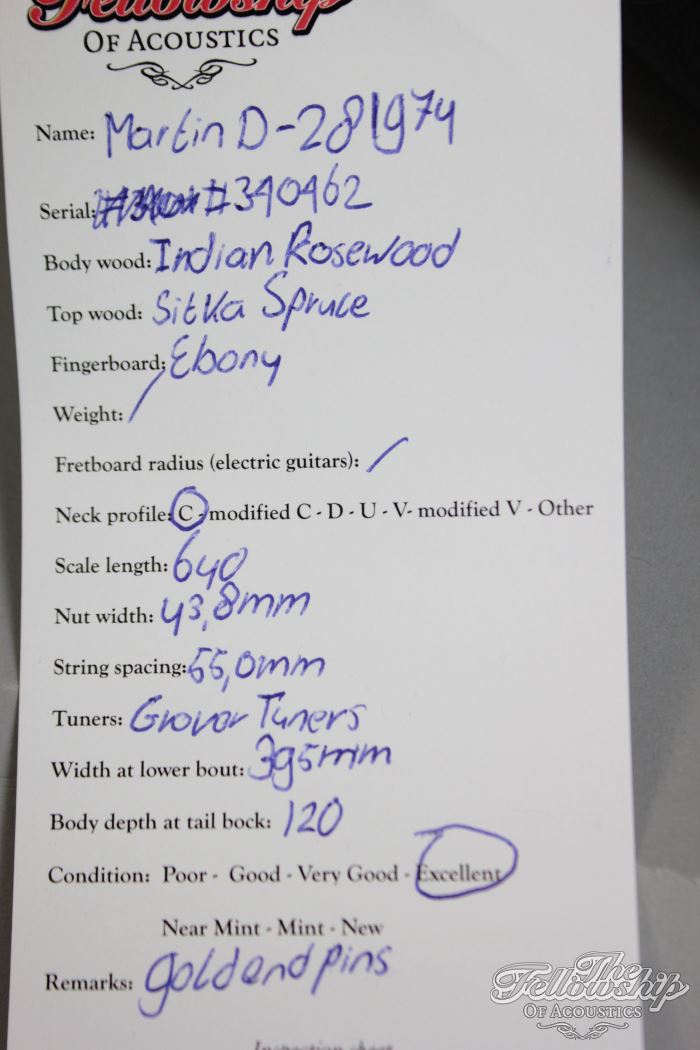 Fellowship
OF ACOUSTICS
Name: Martin D-28 1974
Serial: #340462
Body wood: Indian Rosewood
Top wood: Sitka Spruce
Fingerboard: Ebony
Weight: /
Fretboard radius (electric guitars): /
Neck profile: C - modified C - D - U - V- modified V - Other
Scale length: 640
Nut width: 43,8mm
String spacing: 55,0mm
Tuners: Grover Tuners
Width at lower bout: 395mm
Body depth at tail bock: 120
Condition: Poor - Good - Very Good - Excellent
Near Mint - Mint - New
Remarks: gold end pins
Inspection sheet
The
Fellowship
OF ACOUSTICS